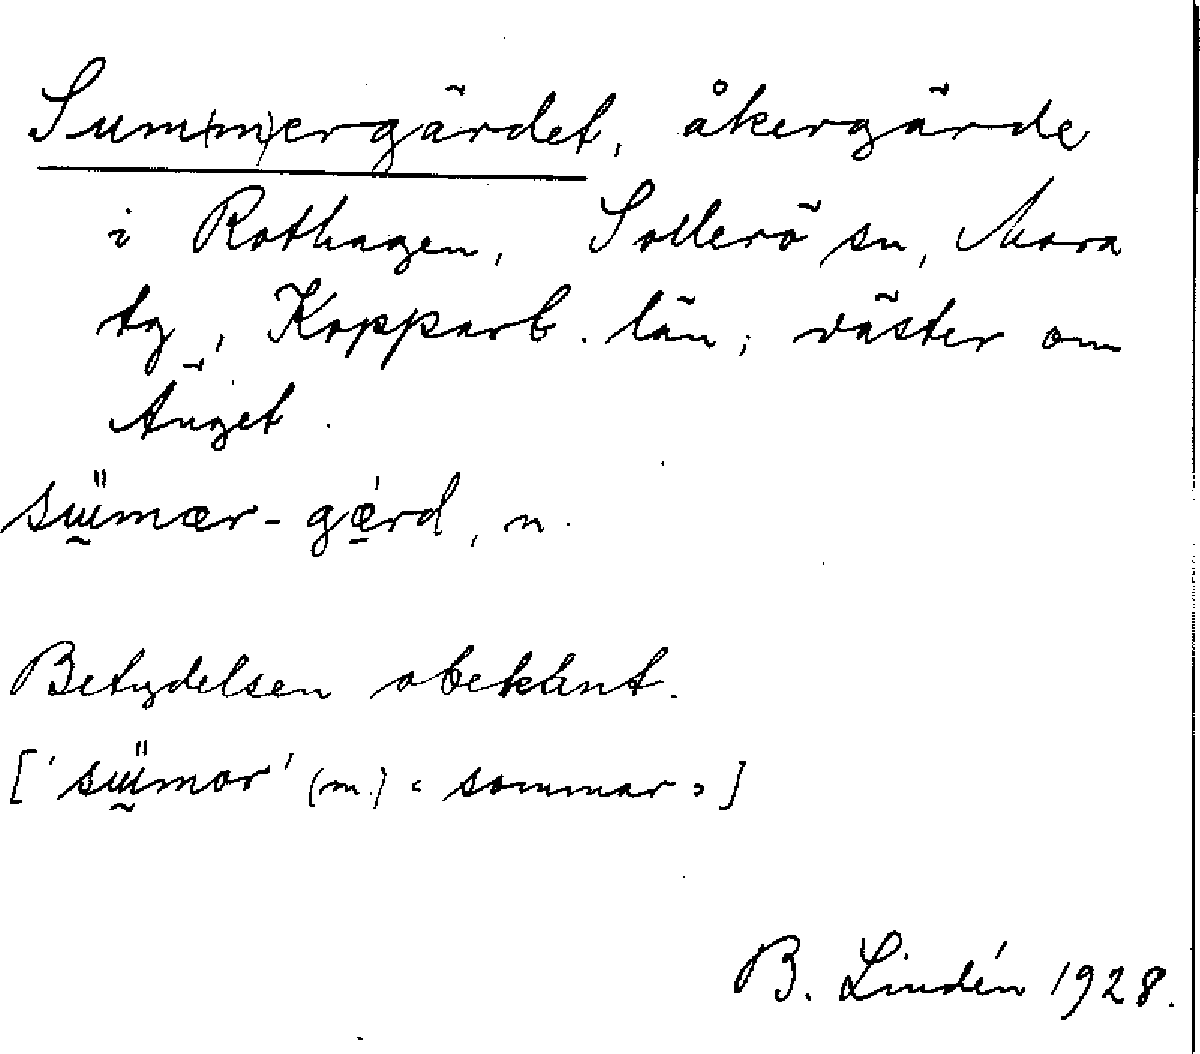 Sum(m)ergärdet, åkergärde
i Rothagen, Sollerö sn, Mora
tg, Kopparb. län; väster om
Änget.
sɯ̈mær-gærd, n.
Betydelsen obekant.
['sɯ̈mor' (m.) «sommar»]
B. Lindén 1928.